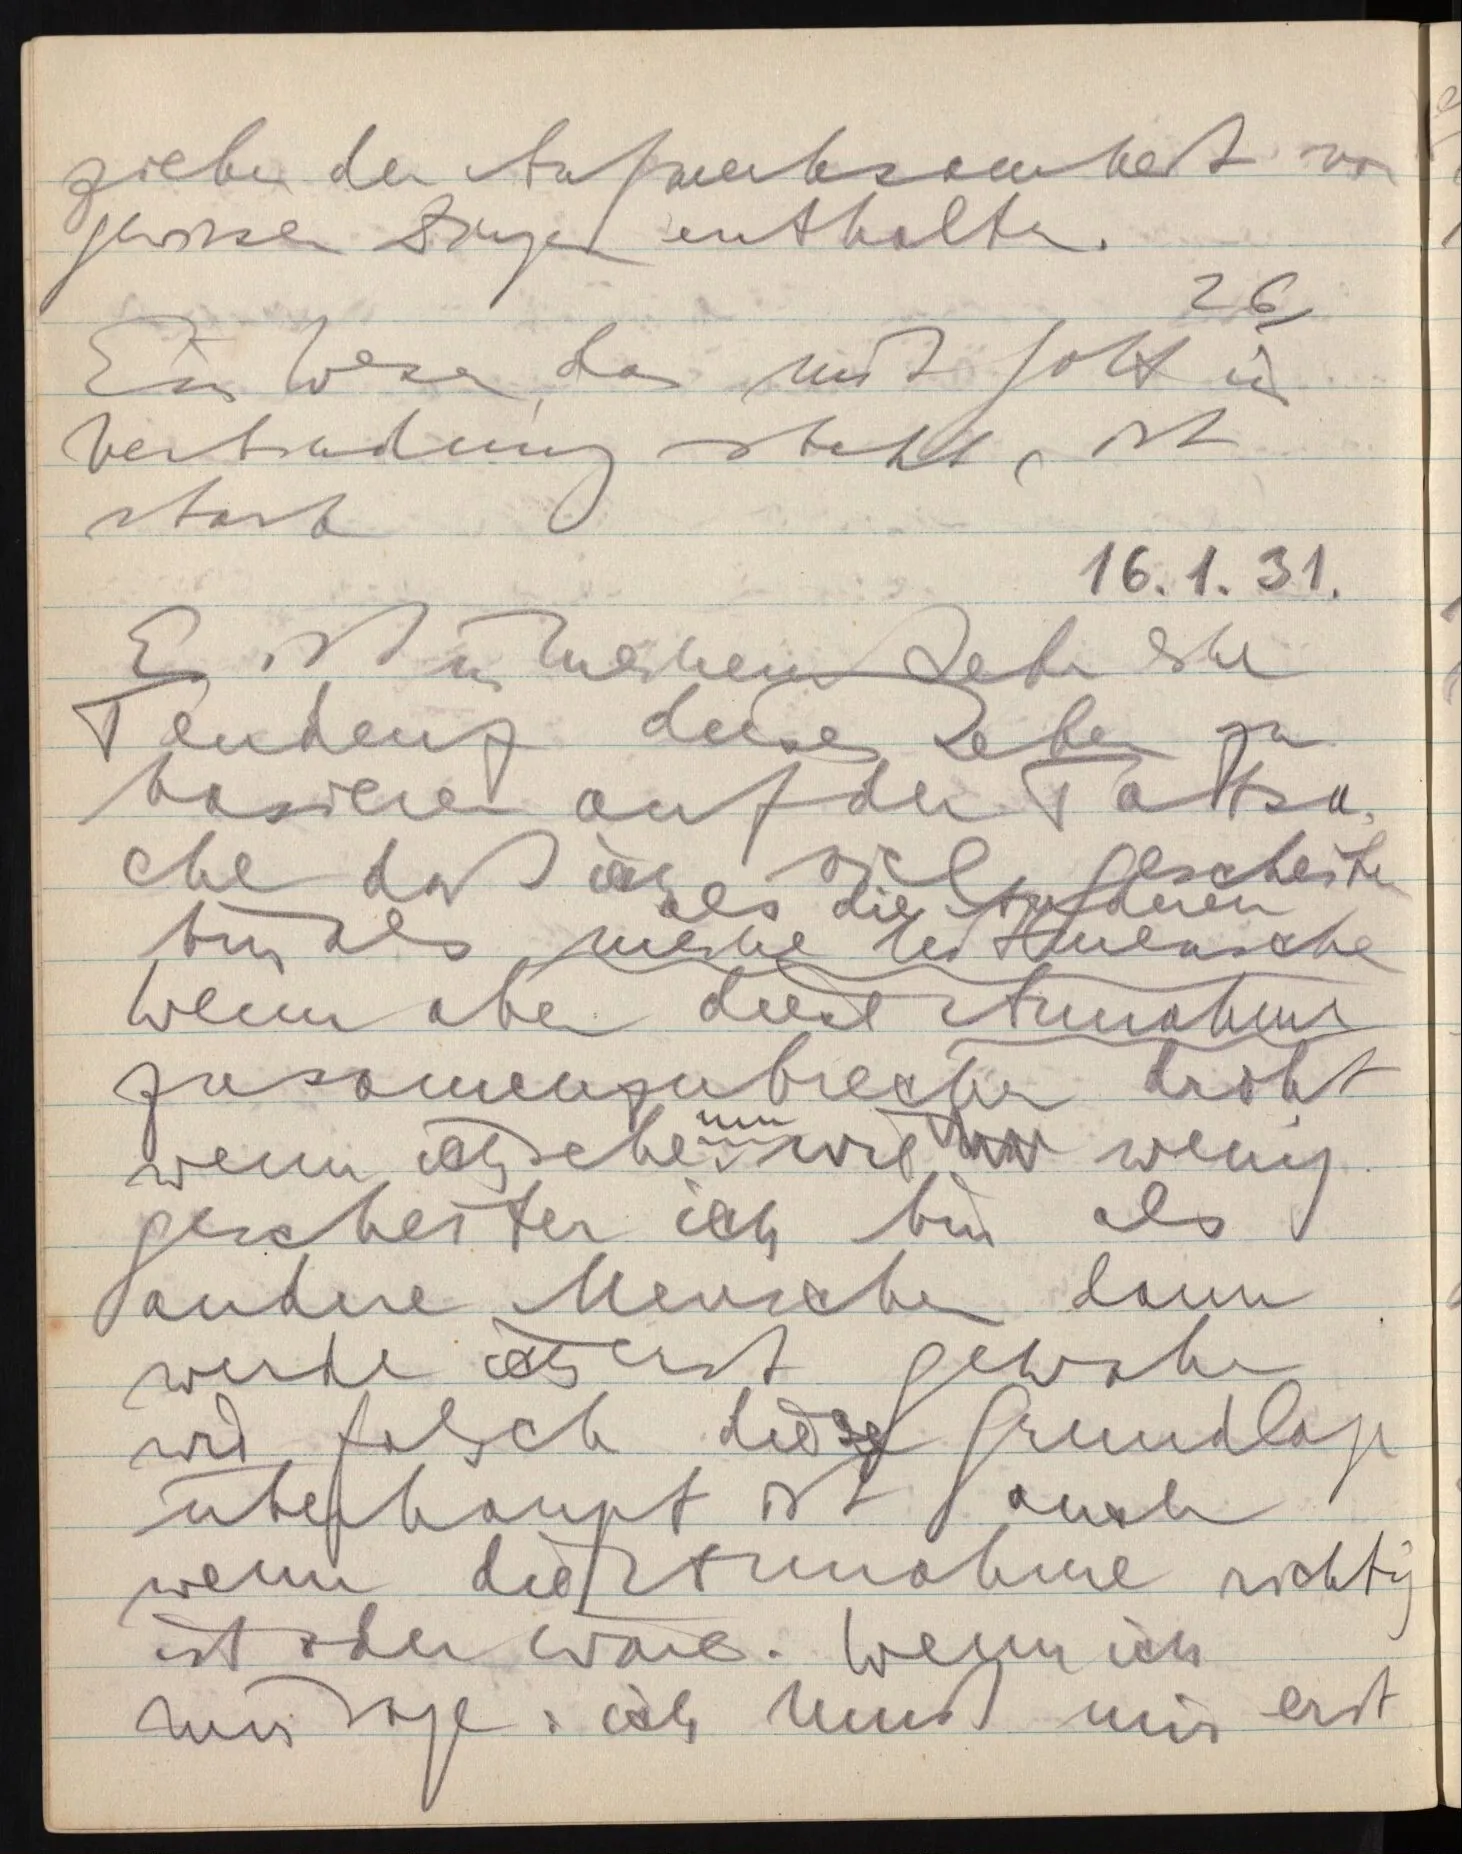 ziehen der Aufmerksamkeit von
gewissen Dingen enthalten.
26.
Ein Wesen, das mit Gott in
Verbindung steht, ist
stark
16. 1. 31.
Es ist in meinem Leben eine
Tendenz dieses Leben zu
basieren auf der Tatsa-
che daß ich viel gescheiter
als die anderen
bin als meine Mitmenschen
Wenn aber diese Annahme
zusammenzubrechen droht
wenn ich sehe wie wenig
gescheiter ich bin als
andere Menschen dann
werde ich erst gewahr
wie falsch diese Grundlage
überhaupt ist auch
wenn die Annahme richtig
ist oder wäre. Wenn ich
mir sage: ich muß mir erst